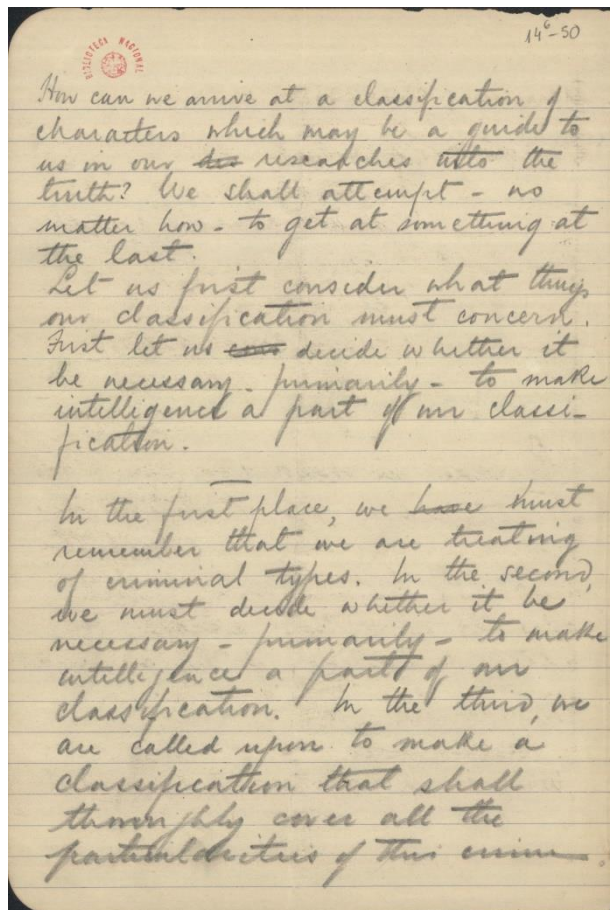 BIBLIOTECA NACIONAL
14⁶-50
How can we arrive at a classification of
characters which may be a guide to
us in our researches into the
truth? We shall attempt - no
matter how - to get at something at
the last.
Let us first consider what things
our classification must concern.
First let us decide whether it
be necessary - primarily - to make
intelligence a part of our classi-
fication.
In the first place, we have must
remember that we are treating
of criminal types. In the second,
we must decide whether it be
necessary - primarily - to make
intelligence a part of our
classification. In the third, we
are called upon to make a
classification that shall
thoroughly cover all the
particularities of this crime.